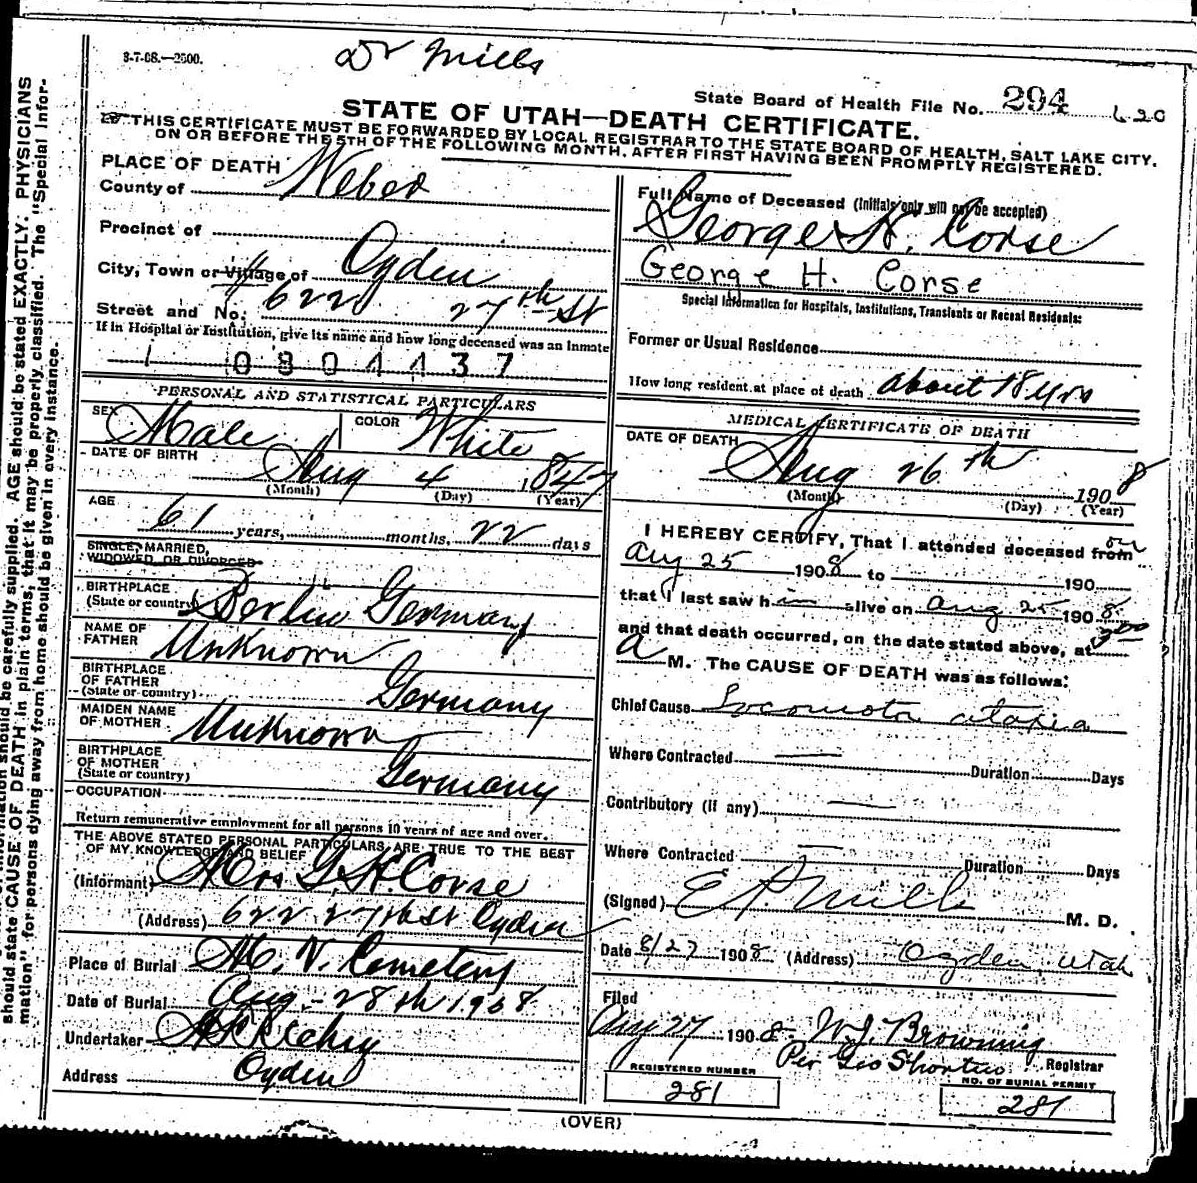 3-7-08.—2500.
Dr Mills
State Board of Health File No. 294 620
STATE OF UTAH—DEATH CERTIFICATE.
THIS CERTIFICATE MUST BE FORWARDED BY LOCAL REGISTRAR TO THE STATE BOARD OF HEALTH, SALT LAKE CITY.
ON OR BEFORE THE 5TH OF THE FOLLOWING MONTH, AFTER FIRST HAVING BEEN PROMPTLY REGISTERED.
PLACE OF DEATH
County of Weber
Precinct of
City, Town or Village of Ogden
Street and No. 622 27th St
If in Hospital or Institution, give its name and how long deceased was an inmate
1 0804437
PERSONAL AND STATISTICAL PARTICULARS
SEX Male COLOR White
DATE OF BIRTH
Aug 4 1847
(Month) (Day) (Year)
AGE
61 years, months, 22 days
SINGLE, MARRIED,
WIDOWED, OR DIVORCED
BIRTHPLACE
(State or country) Berlin Germany
NAME OF
FATHER Unknown
BIRTHPLACE
OF FATHER
(State or country) Germany
MAIDEN NAME
OF MOTHER Unknown
BIRTHPLACE
OF MOTHER
(State or country) Germany
OCCUPATION
Return remunerative employment for all persons 10 years of age and over.
THE ABOVE STATED PERSONAL PARTICULARS ARE TRUE TO THE BEST
OF MY KNOWLEDGE AND BELIEF
(Informant) Mrs G. H. Corse
(Address) 622 27th St Ogden
Place of Burial M. V. Cemetery
Date of Burial Aug - 28th 1908
Undertaker
Address Ogden
Full Name of Deceased (Initials only will not be accepted)
George H. Corse
George H. Corse
Special Information for Hospitals, Institutions, Transients or Recent Residents:
Former or Usual Residence
How long resident at place of death about 18 yrs
MEDICAL CERTIFICATE OF DEATH
DATE OF DEATH
Aug 26th 1908
(Month) (Day) (Year)
I HEREBY CERTIFY, That I attended deceased from on
Aug 25 1908 to 190
that I last saw him alive on Aug 25 1908
and that death occurred, on the date stated above, at 3 00
A M. The CAUSE OF DEATH was as follows:
Chief Cause Locomotor ataxia
Where Contracted Duration Days
Contributory (if any)
Where Contracted Duration Days
(Signed) E. P. Mills M. D.
Date 8/27 1908 (Address) Ogden, Utah
Filed
Aug 27 1908 W. J. Browning
Per Geo Shorten Registrar
REGISTERED NUMBER
281
NO. OF BURIAL PERMIT
281
(OVER)
should be carefully supplied. AGE should be stated EXACTLY. PHYSICIANS
should state CAUSE OF DEATH in plain terms, that it may be properly classified. The "Special Infor-
mation" for persons dying away from home should be given in every instance.